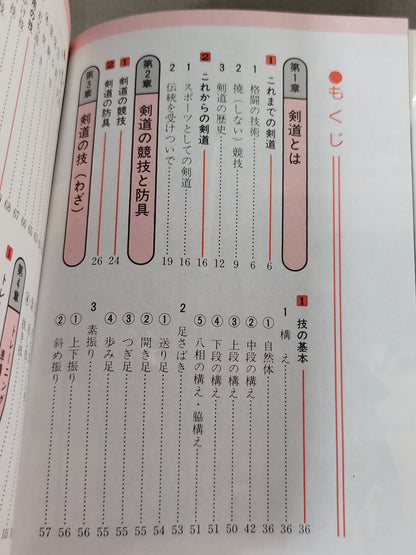 ●もくじ
第1章 剣道とは
1 これまでの剣道……6
1 格闘の技術……6
2 撓（しない）競技……9
3 剣道の歴史……12
2 これからの剣道……16
1 スポーツとしての剣道……16
2 伝統を受けついで……19
第2章 剣道の競技と防具
1 剣道の競技……24
2 剣道の防具……26
第3章 剣道の技（わざ）
1 技の基本……36
1 構え……36
① 自然体……36
② 中段の構え……42
③ 上段の構え……50
④ 下段の構え……51
⑤ 八相の構え・脇構え……51
2 足さばき……53
① 送り足……54
② 開き足……55
③ つぎ足……55
④ 歩み足……55
3 素振り……56
① 上下振り……56
② 斜め振り……57
1
第4章